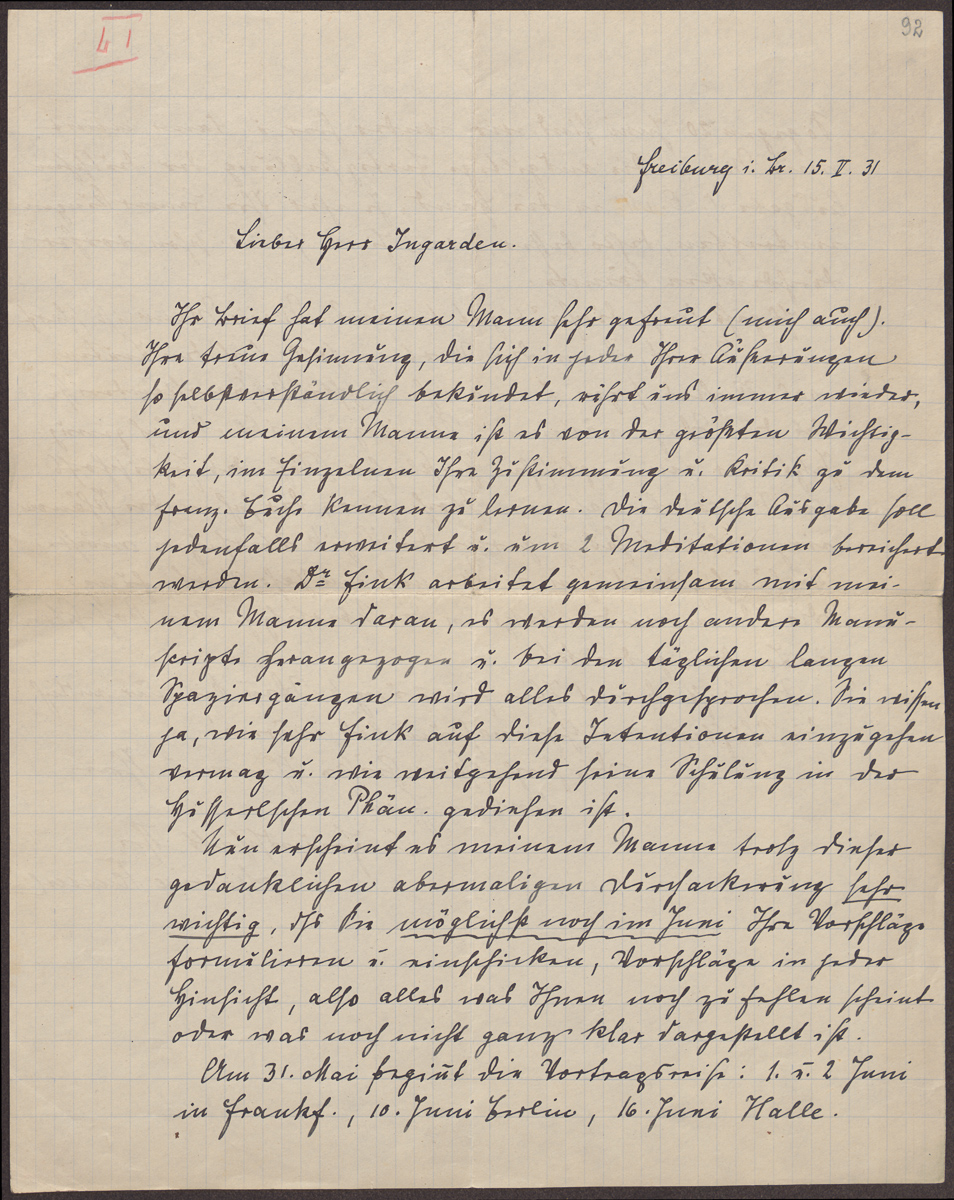 92
Freiburg i. Br. 15. V. 31
Lieber Herr Ingarden.
Ihr Brief hat meinen Mann sehr gefreut (mich auch).
Ihre treue Gesinnung, die sich in jeder Ihrer Äußerungen
so selbstverständlich bekundet, rührt uns immer wieder,
und meinem Manne ist es von der größten Wichtig-
keit, im Einzelnen Ihre Zustimmung u. Kritik zu dem
franz. Buche kennen zu lernen. Die deutsche Ausgabe soll
jedenfalls erweitert u. um 2 Meditationen bereichert
werden. Dr Fink arbeitet gemeinsam mit mei-
nem Manne daran, es werden noch andere Manu-
scripte herangezogen u. bei den täglichen langen
Spaziergängen wird alles durchgesprochen. Sie wissen
ja, wie sehr Fink auf diese Intentionen einzugehen
vermag u. wie weitgehend seine Schulung in der
Husserlschen Phän. gediehen ist.
Nun erscheint es meinem Manne trotz dieser
gedanklichen abermaligen Durchackerung sehr
wichtig, dß Sie möglichst noch im Juni Ihre Vorschläge
formulieren u. einschicken, Vorschläge in jeder
Hinsicht, also alles was Ihnen noch zu fehlen scheint
oder was noch nicht ganz klar dargestellt ist.
Am 31. Mai beginnt die Vortragsreise: 1. u. 2 Juni
in Frankf., 10. Juni Berlin, 16. Juni Halle.